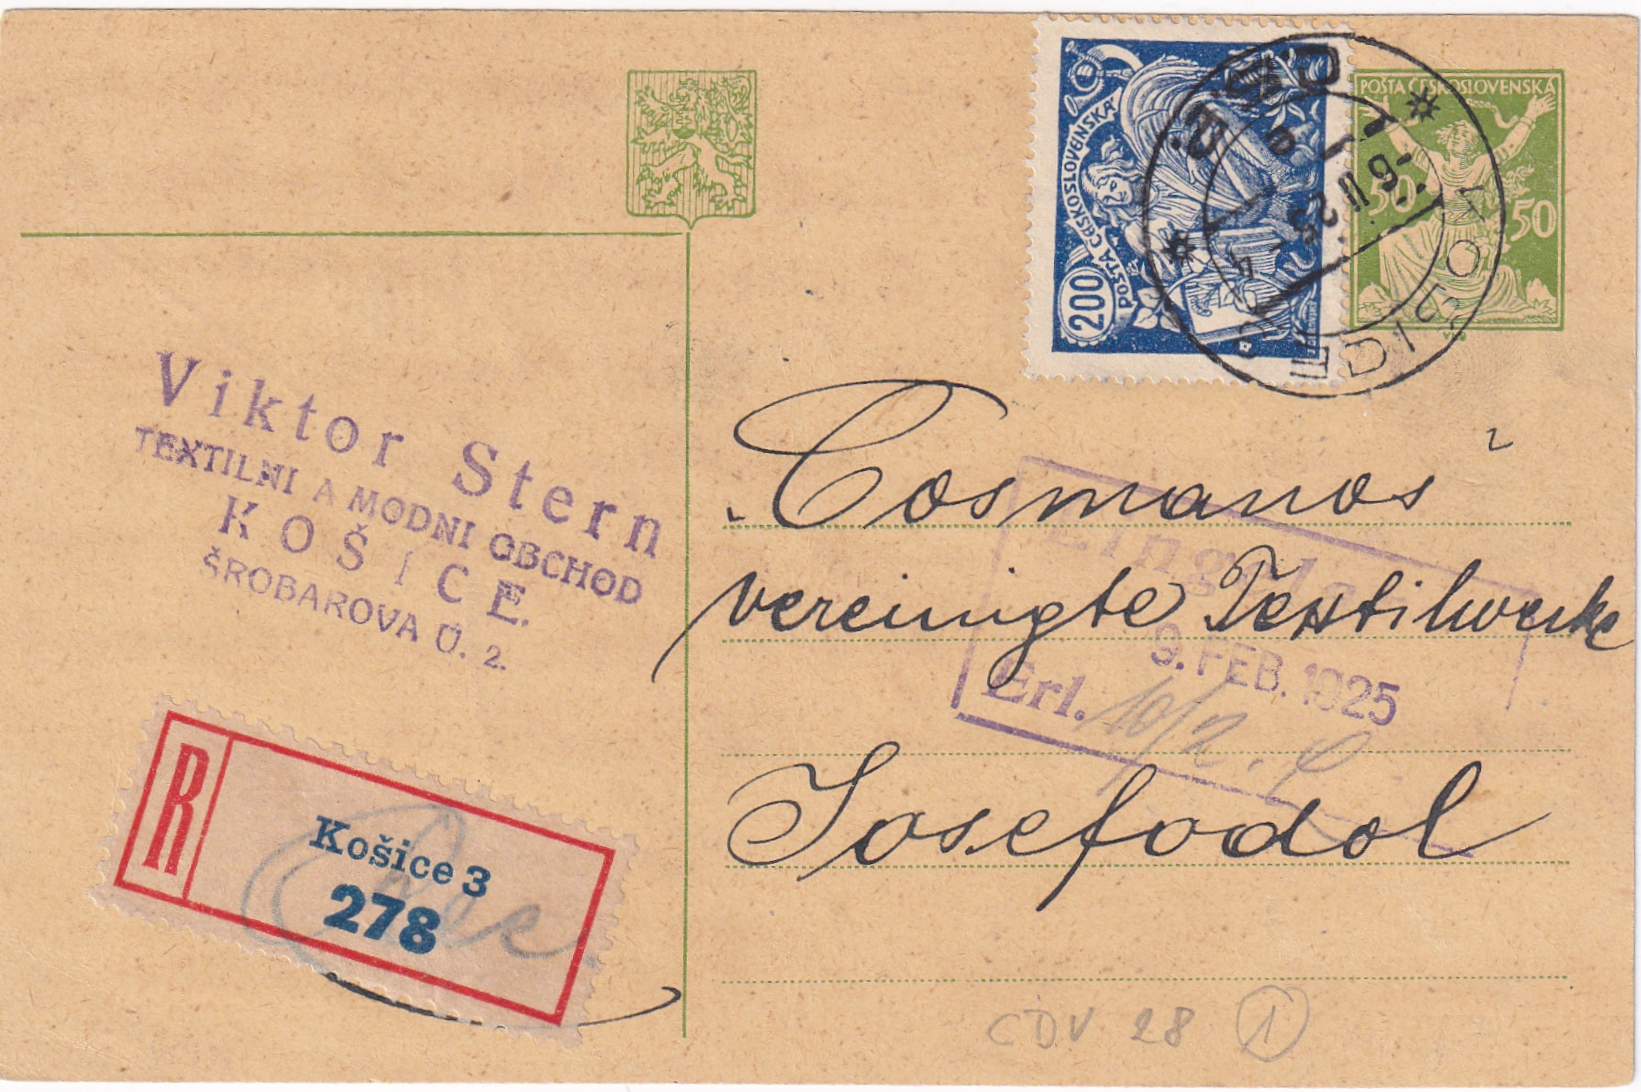 POŠTA ČESKOSLOVENSKÁ
200
POŠTA ČESKOSLOVENSKÁ
50 50
Viktor Stern
TEXTILNI A MODNI OBCHOD
KOŠICE.
ŠROBAROVA U. 2.
"Cosmanos"
vereinigte Textilwerke
Josefodol
9. FEB. 1925
Erl. 10/2.
R
Košice 3
278
ČDV 28 1